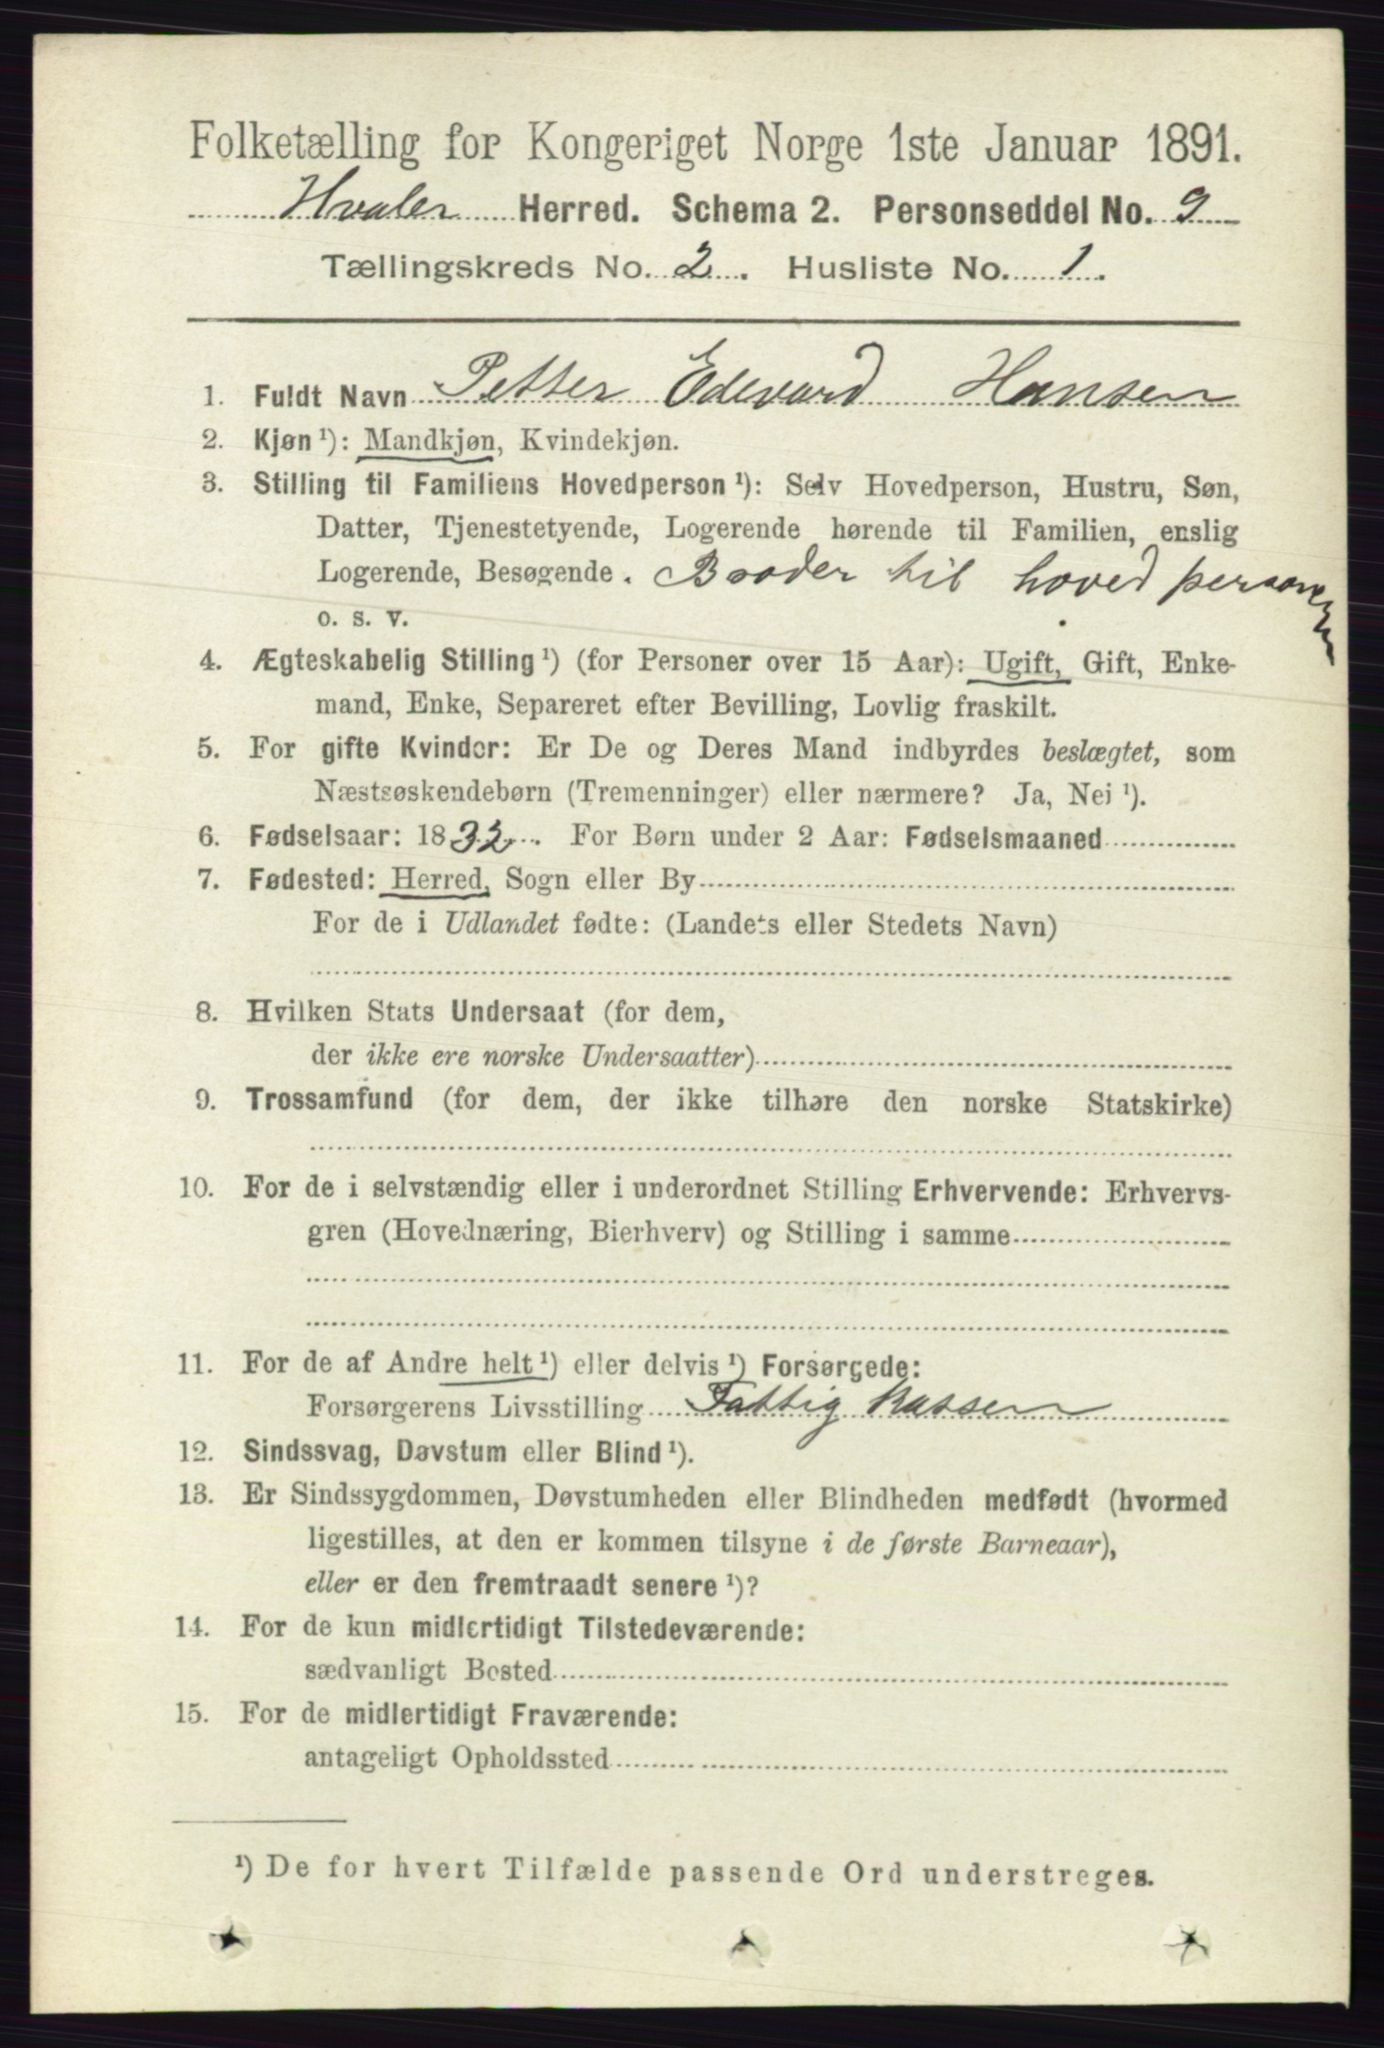 Folketælling for Kongeriget Norge 1ste Januar 1891.
Hvaler Herred. Schema 2. Personseddel No. 9
Tællingskreds No. 2. Husliste No. 1.
1. Fuldt Navn Petter Edevard Hansen
2. Kjøn ¹): Mandkjøn, Kvindekjøn.
3. Stilling til Familiens Hovedperson ¹): Selv Hovedperson, Hustru, Søn,
Datter, Tjenestetyende, Logerende hørende til Familien, enslig
Logerende, Besøgende. Broder til hoved personen
o. s. v.
4. Ægteskabelig Stilling ¹) (for Personer over 15 Aar): Ugift, Gift, Enke-
mand, Enke, Separeret efter Bevilling, Lovlig fraskilt.
5. For gifte Kvinder: Er De og Deres Mand indbyrdes beslægtet, som
Næstsøskendebørn (Tremenninger) eller nærmere? Ja, Nei ¹).
6. Fødselsaar: 1832. For Børn under 2 Aar: Fødselsmaaned
7. Fødested: Herred, Sogn eller By
For de i Udlandet fødte: (Landets eller Stedets Navn)
8. Hvilken Stats Undersaat (for dem,
der ikke ere norske Undersaatter)
9. Trossamfund (for dem, der ikke tilhøre den norske Statskirke)
10. For de i selvstændig eller i underordnet Stilling Erhvervende: Erhvervs-
gren (Hovednæring, Bierhverv) og Stilling i samme
11. For de af Andre helt ¹) eller delvis ¹) Forsørgede:
Forsørgerens Livsstilling Fattig kassen
12. Sindssvag, Døvstum eller Blind ¹).
13. Er Sindssygdommen, Døvstumheden eller Blindheden medfødt (hvormed
ligestilles, at den er kommen tilsyne i de første Barneaar),
eller er den fremtraadt senere ¹)?
14. For de kun midlertidigt Tilstedeværende:
sædvanligt Bosted
15. For de midlertidigt Fraværende:
antageligt Opholdssted
¹) De for hvert Tilfælde passende Ord understreges.